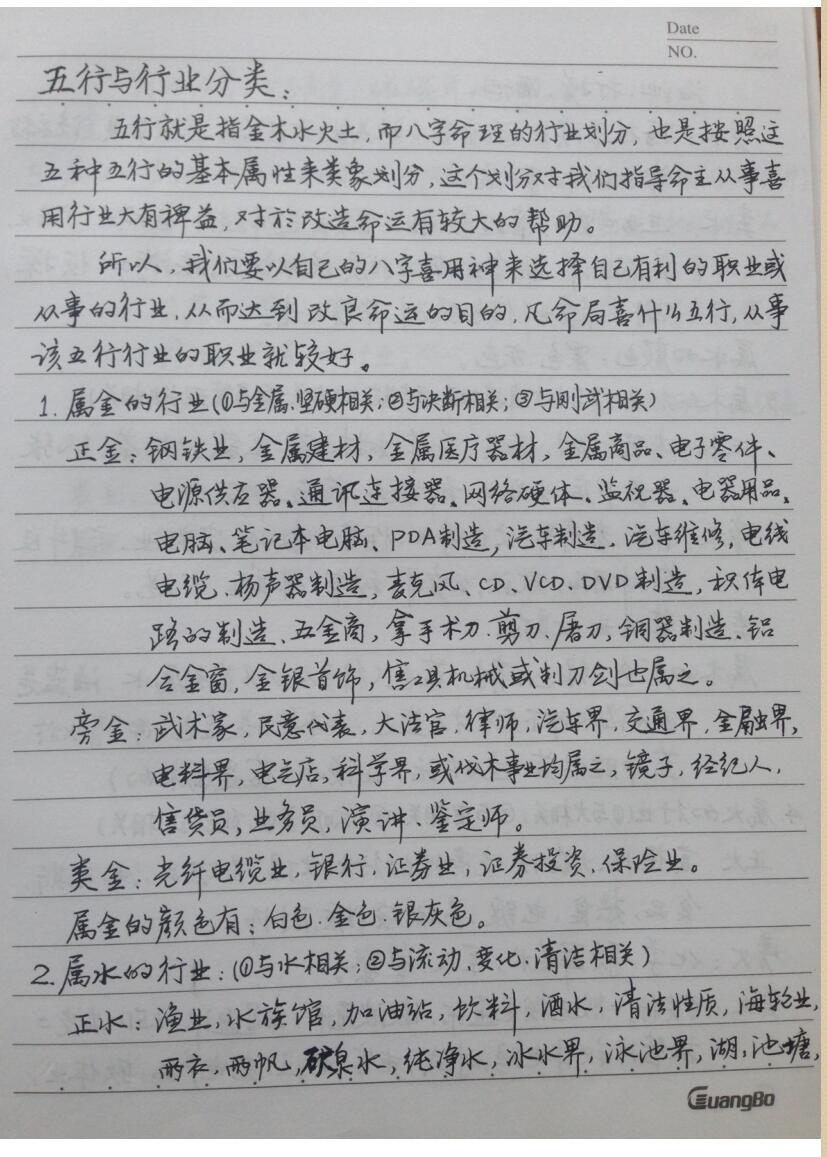 Date
NO.
五行与行业分类：
五行就是指金木水火土，而八字命理的行业划分，也是按照这
五种五行的基本属性来类象划分，这个划分对我们指导命主从事喜
用行业大有裨益，对于改造命运有较大的帮助。
所以，我们要以自己的八字喜用神来选择自己有利的职业或
从事的行业，从而达到改良命运的目的，凡命局喜什么五行，从事
该五行行业的职业就较好。
1. 属金的行业（①与金属、坚硬相关；②与决断相关；③与刚武相关）
正金：钢铁业，金属建材，金属医疗器材，金属商品、电子零件、
电源供应器、通讯连接器、网络硬体、监视器、电器用品、
电脑、笔记本电脑、PDA制造，汽车制造、汽车维修，电线
电缆、杨声器制造，麦克风、CD、VCD、DVD制造，积体电
路的制造、五金商，拿手术刀、剪刀、屠刀，铜器制造、铝
合金窗，金银首饰，售工具机械或制刀剑也属之。
旁金：武术家，民意代表，大法官，律师，汽车界，交通界，金融界，
电料界，电气店，科学界，或伐木事业均属之，镜子，经纪人，
售货员，业务员，演讲、鉴定师。
类金：光纤电缆业，银行，证券业，证券投资、保险业。
属金的颜色有：白色、金色、银灰色。
2. 属水的行业：（①与水相关；②与流动、变化、清洁相关）
正水：渔业，水族馆，加油站，饮料，酒水，清洁性质，海轮业，
雨衣，雨帆，矿泉水，纯净水，冰水界，泳池界，湖，池塘，
GuangBo